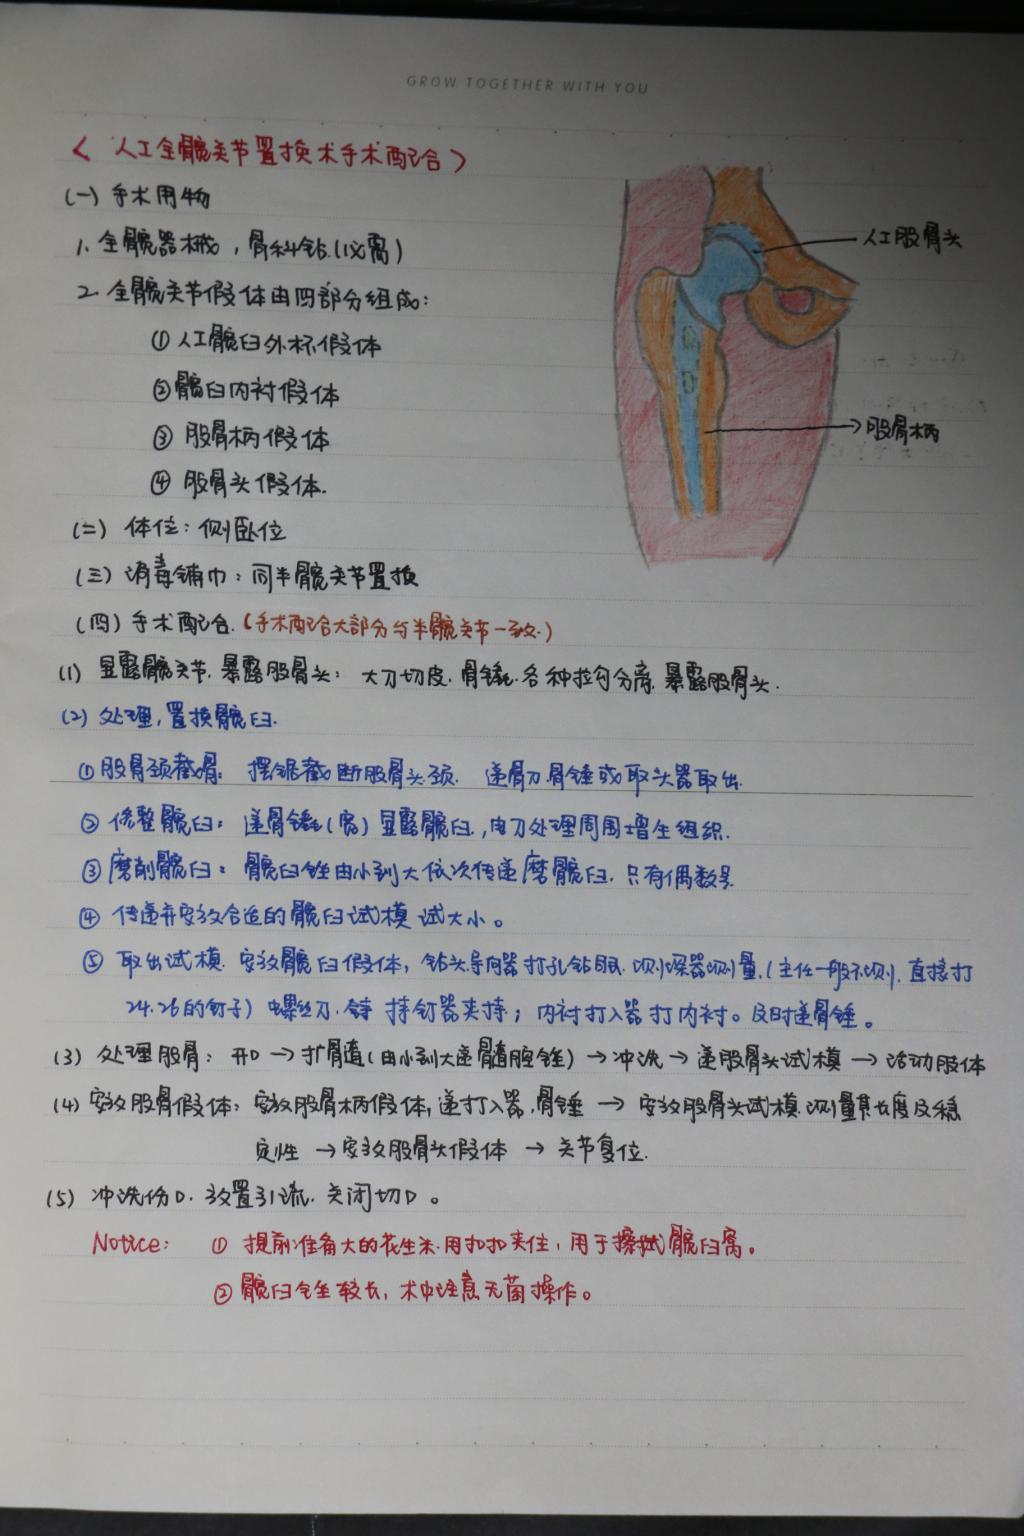 GROW TOGETHER WITH YOU
< 人工全髋关节置换术手术配合 >
人工股骨头
股骨柄
(一) 手术用物
1. 全髋器械，骨科钻.(必需)
2. 全髋关节假体由四部分组成：
① 人工髋臼外杯假体
② 髋臼内衬假体
③ 股骨柄假体
④ 股骨头假体.
(二) 体位：侧卧位
(三) 消毒铺巾：同半髋关节置换
(四) 手术配合.(手术配合大部分与半髋关节一致.)
(1) 显露髋关节.暴露股骨头： 大刀切皮.骨锤.各种拉勾分离.暴露股骨头.
(2) 处理，置换髋臼.
① 股骨颈截骨： 摆锯截断股骨头颈. 递骨刀骨锤或取头器取出.
② 修整髋臼： 递骨锤(宽) 显露髋臼，电刀处理周围增生组织.
③ 磨削髋臼： 髋臼锉由小到大依次传递磨髋臼.只有偶数号
④ 传递并安放合适的髋臼试模 试大小。
⑤ 取出试模.安放髋臼假体，钻头导向器打孔钻眼.测深器测量.(主任一般不测.直接打
24.26的钉子) 螺丝刀. 持钉器夹持；内衬打入器打内衬。及时递骨锤。
(3) 处理股骨：开口 → 扩骨道(由小到大递髓腔锉) → 冲洗 → 递股骨头试模 → 活动肢体
(4) 安放股骨假体：安放股骨柄假体，递打入器.骨锤 → 安放股骨头试模.测量其长度及稳
定性 → 安放股骨头假体 → 关节复位.
(5) 冲洗伤口.放置引流.关闭切口。
Notice: ① 提前准备大的花生米.用扣扣夹住，用于擦拭髋臼窝。
② 髋臼锉较长，术中注意无菌操作。